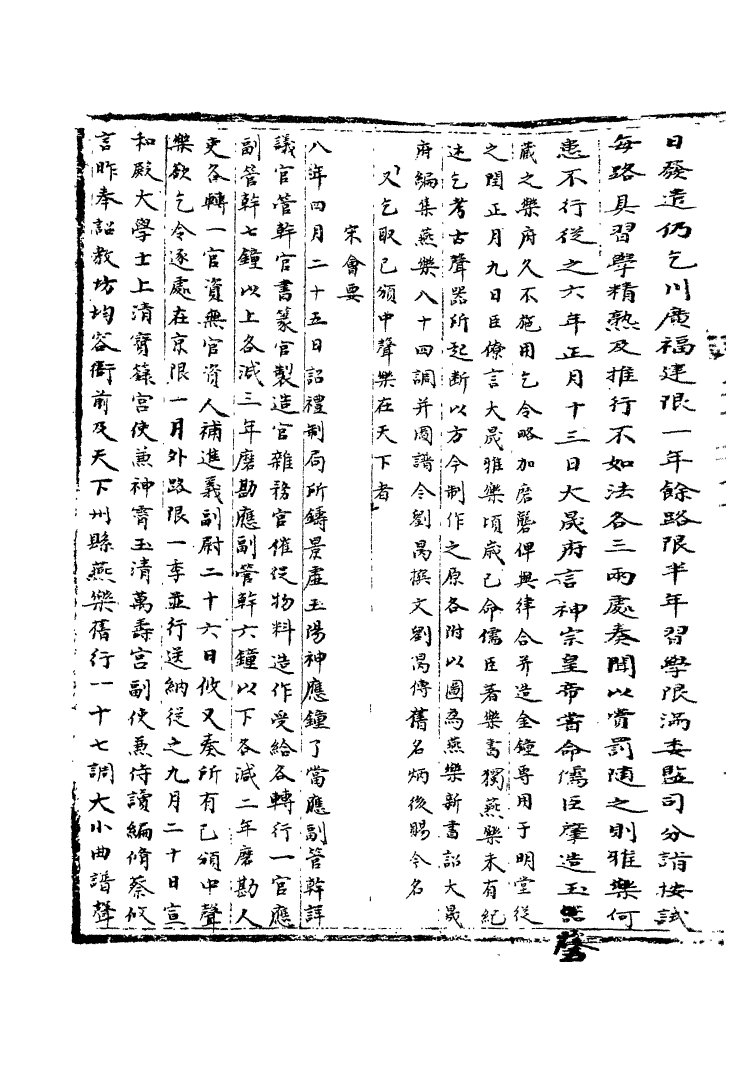 日發遣仍乞川廣福建限一年餘路限半年習學限滿委監司分詣按試
每路具習學精熟及推行不如法各三兩處奏聞以賞罰随之則雅樂何
患不行從之六年正月十三日大晟府言神宗皇帝嘗命儒臣肇造玉磬
藏之樂府久不施用乞令略加磨礱俾與律合并造金鐘専用于明堂從
之閏正月九日臣僚言大晟雅樂頃歲已命儒臣著樂書獨燕樂未有紀
述乞考古聲器所起斷以方今制作之原各附以圖為燕樂新書詔大晟
府編集燕樂八十四調并圖譜令劉昺撰文劉昺傳舊名炳後賜今名
又乞取已頒中聲樂在天下者
宋會要
八年四月二十五日詔禮制局所鑄景虚玉陽神應鐘了當應副管幹詳
議官管幹官書篆官製造官雜務官催促物料造作受給各轉行一官應
副管幹七鐘以上各減三年磨勘應副管幹六鐘以下各減二年磨勘人
吏各轉一官資無官資人補進義副尉二十六日攸又奏所有已頒中聲
樂欲乞令逐處在京限一月外路限一季並行送納從之九月二十日宣
和殿大學士上清寶籙宮使兼神霄玉清萬壽宮副使兼侍讀編脩蔡攸
言昨奉詔教坊均容衙前及天下州縣燕樂舊行一十七調大小曲譜聲